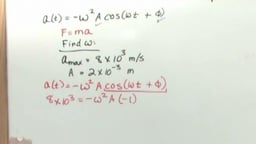 a(t) = -ω² A cos(ωt + φ)
F = ma
Find ω:
amax = 8 × 10³ m/s
A = 2 × 10⁻³ m
a(t) = -ω² A cos(ωt + φ)
8 × 10³ = -ω² A (-1)